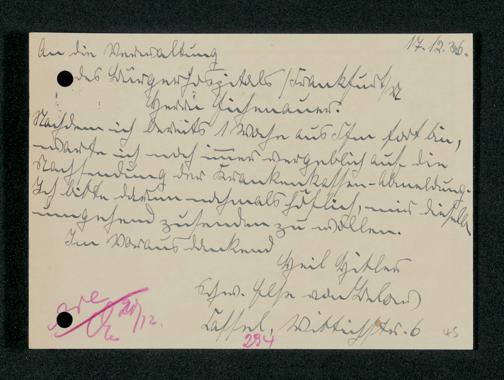 17.12.36.
An die Verwaltung
des Bürgerhospitals Frankfurt/M
Herrn Eichenauer.
Nachdem ich bereits 1 Woche aus Ffm fort bin,
warte ich noch immer vergeblich auf die
Nachsendung der Krankenkassen-Abmeldung.
Ich bitte darum nochmals höflich, mir dieselbe
umgehend zusenden zu wollen.
Im Voraus dankend
Heil Hitler
Schw. Else von
Cassel, Wittichstr. 6
20/12.
294
45